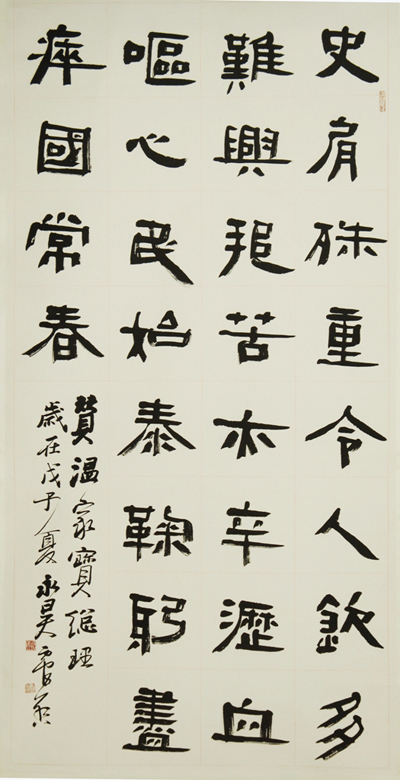 史肩殊重令人欽多
難興邦苦亦辛瀝血
嘔心民始泰鞠躬盡
瘁國常春
贊溫家寶總理
歲在戊子夏永昊